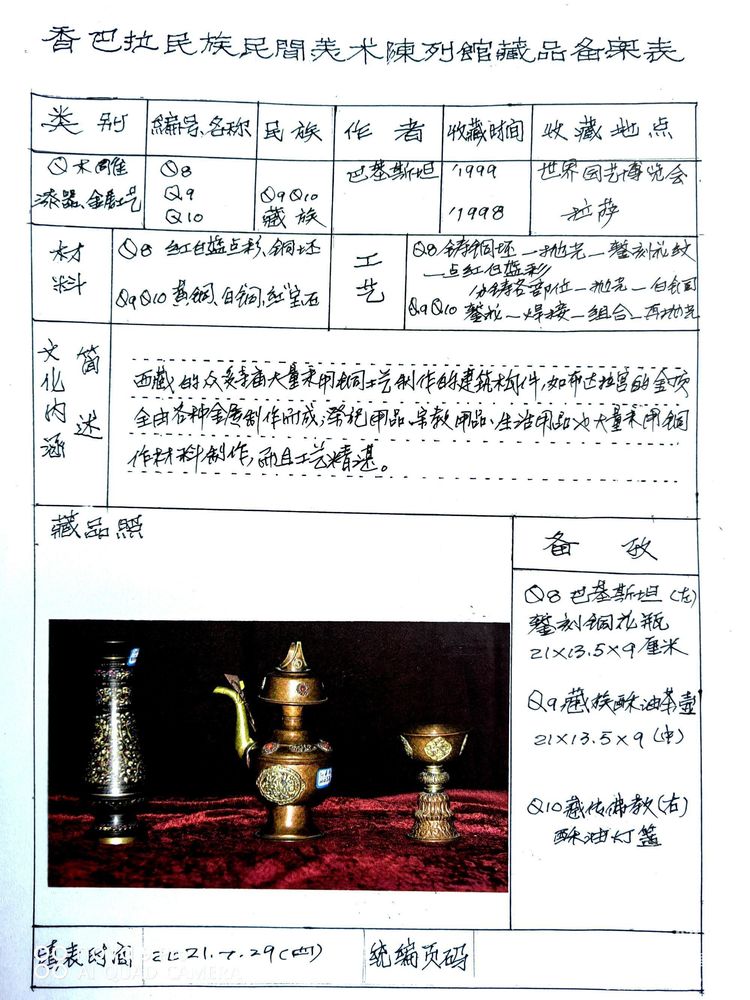 香巴拉民族民間美术陳列館藏品备案表
类别 編号、名称 民族 作者 收藏时间 收藏地点
Q木雕 Q8 巴基斯坦 1999 世界园艺博览会
漆器、金属工艺 Q9 Q9Q10
Q10 藏族 1998 拉萨
材料 Q8 红白蓝点彩、铜坯
Q9Q10 黄铜、白铜、红宝石
工艺 Q8铸铜坯—抛光—錾刻花纹
—点红白蓝彩
分铸各部位—抛光—白铜
Q9Q10 錾花—焊接—组合—再抛光
文化内涵 简述
西藏的众多寺庙大量采用铜工艺制作的建筑构件,如布达拉宫的金顶
全由各种金属制作而成,祭祀用品、宗教用品、生活用品也大量采用铜
作材料制作,而且工艺精湛。
藏品照
备考
Q8 巴基斯坦(左)
錾刻铜花瓶
21×13.5×9厘米
Q9藏族酥油茶壶
21×13.5×9(中)
Q10藏传佛教(右)
酥油灯盏
填表时间 2021.7.29(四) 统编页码
AI QUAD CAMERA